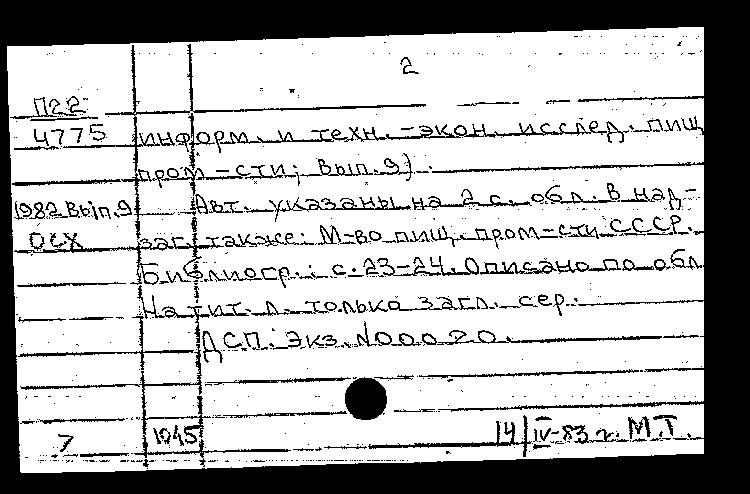 2
П22
4775 информ. и техн.-экон. исслед. пищ
пром-сти; Вып.9).
1982 Вып.9 Авт. указаны на 2 с. обл. В над-
ОСХ заг. также: М-во пищ. пром-сти СССР.
Библиогр.: с.23-24. Описано по обл
На тит. л. только загл. сер.
ДСП. Экз. N 00020.
7 1945 14/IV-83 г. М.Т.